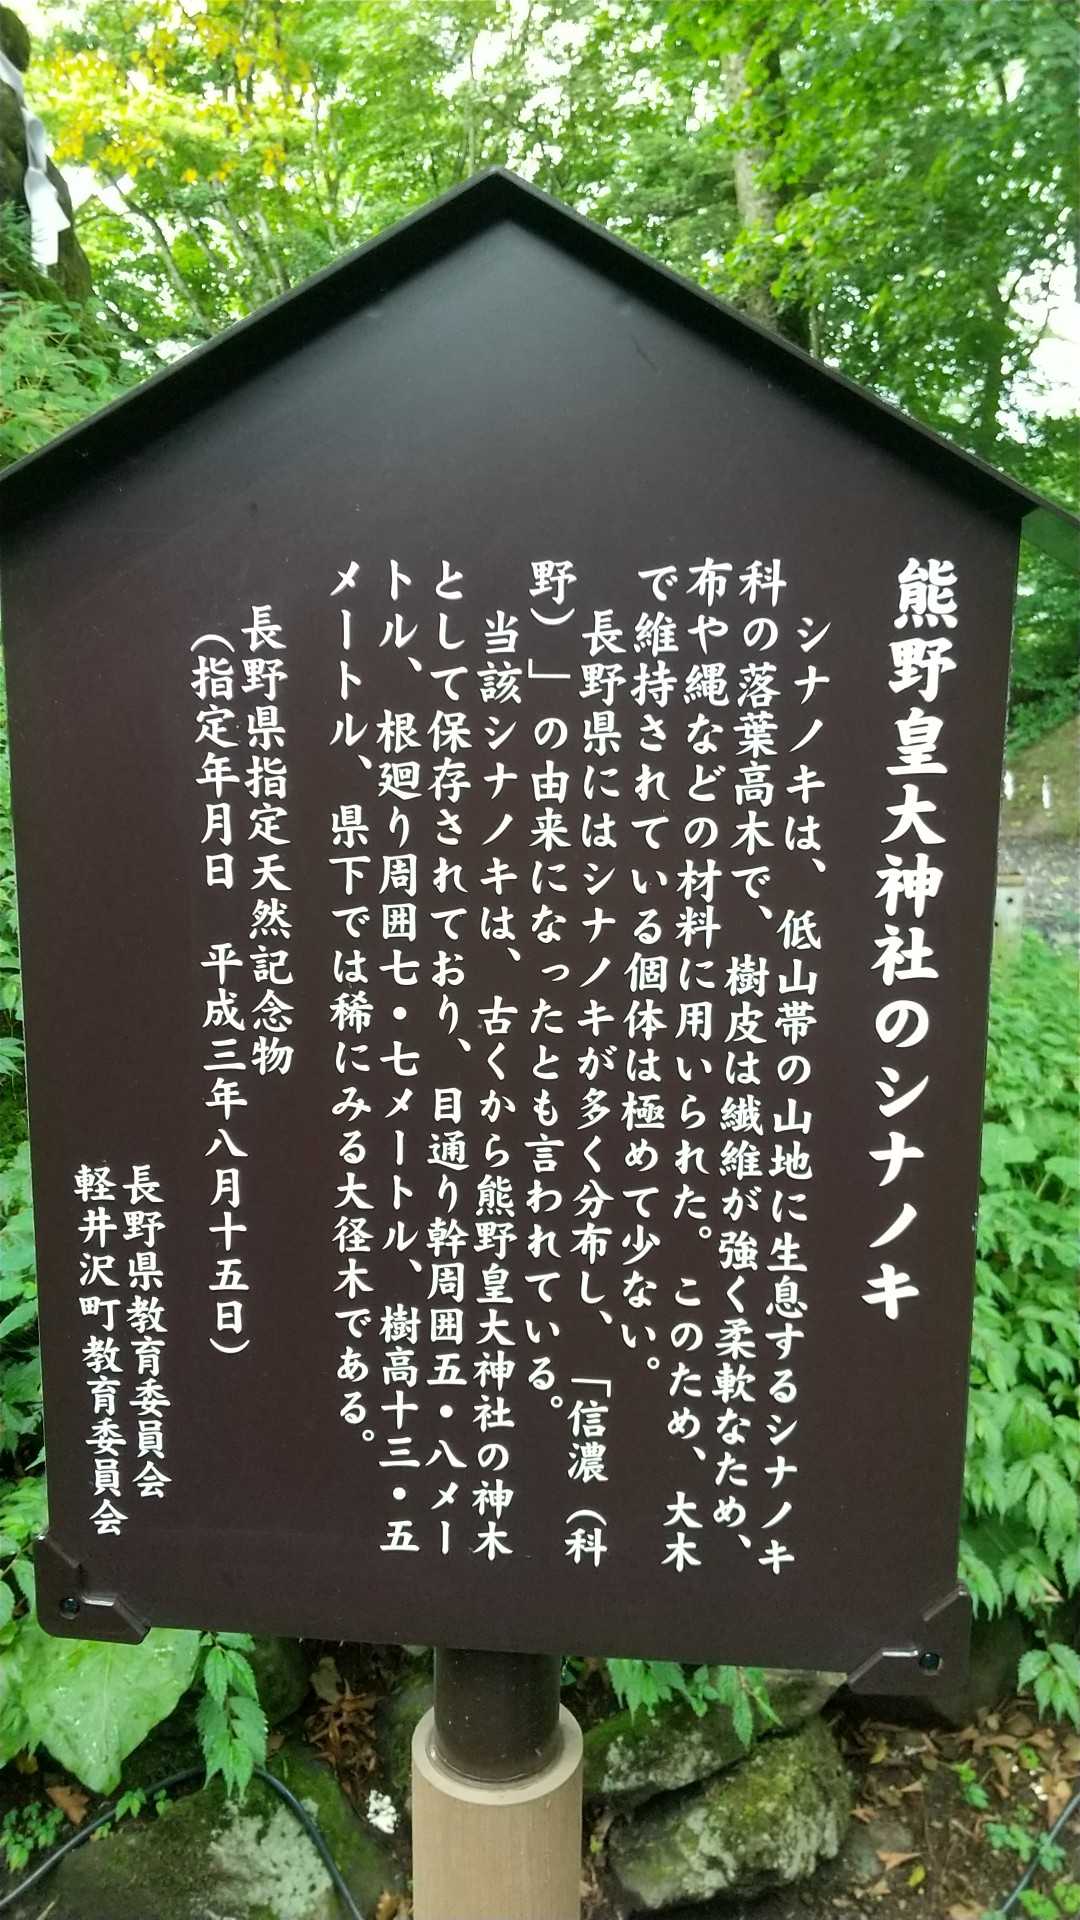 熊野皇大神社のシナノキ
シナノキは、低山帯の山地に生息するシナノキ
科の落葉高木で、樹皮は繊維が強く柔軟なため、
布や縄などの材料に用いられた。このため、大木
で維持されている個体は極めて少ない。
長野県にはシナノキが多く分布し、「信濃（科
野）」の由来になったとも言われている。
当該シナノキは、古くから熊野皇大神社の神木
として保存されており、目通り幹周囲五・八メー
トル、根廻り周囲七・七メートル、樹高十三・五
メートル、県下では稀にみる大径木である。
長野県指定天然記念物
（指定年月日　平成三年八月十五日）
長野県教育委員会
軽井沢町教育委員会